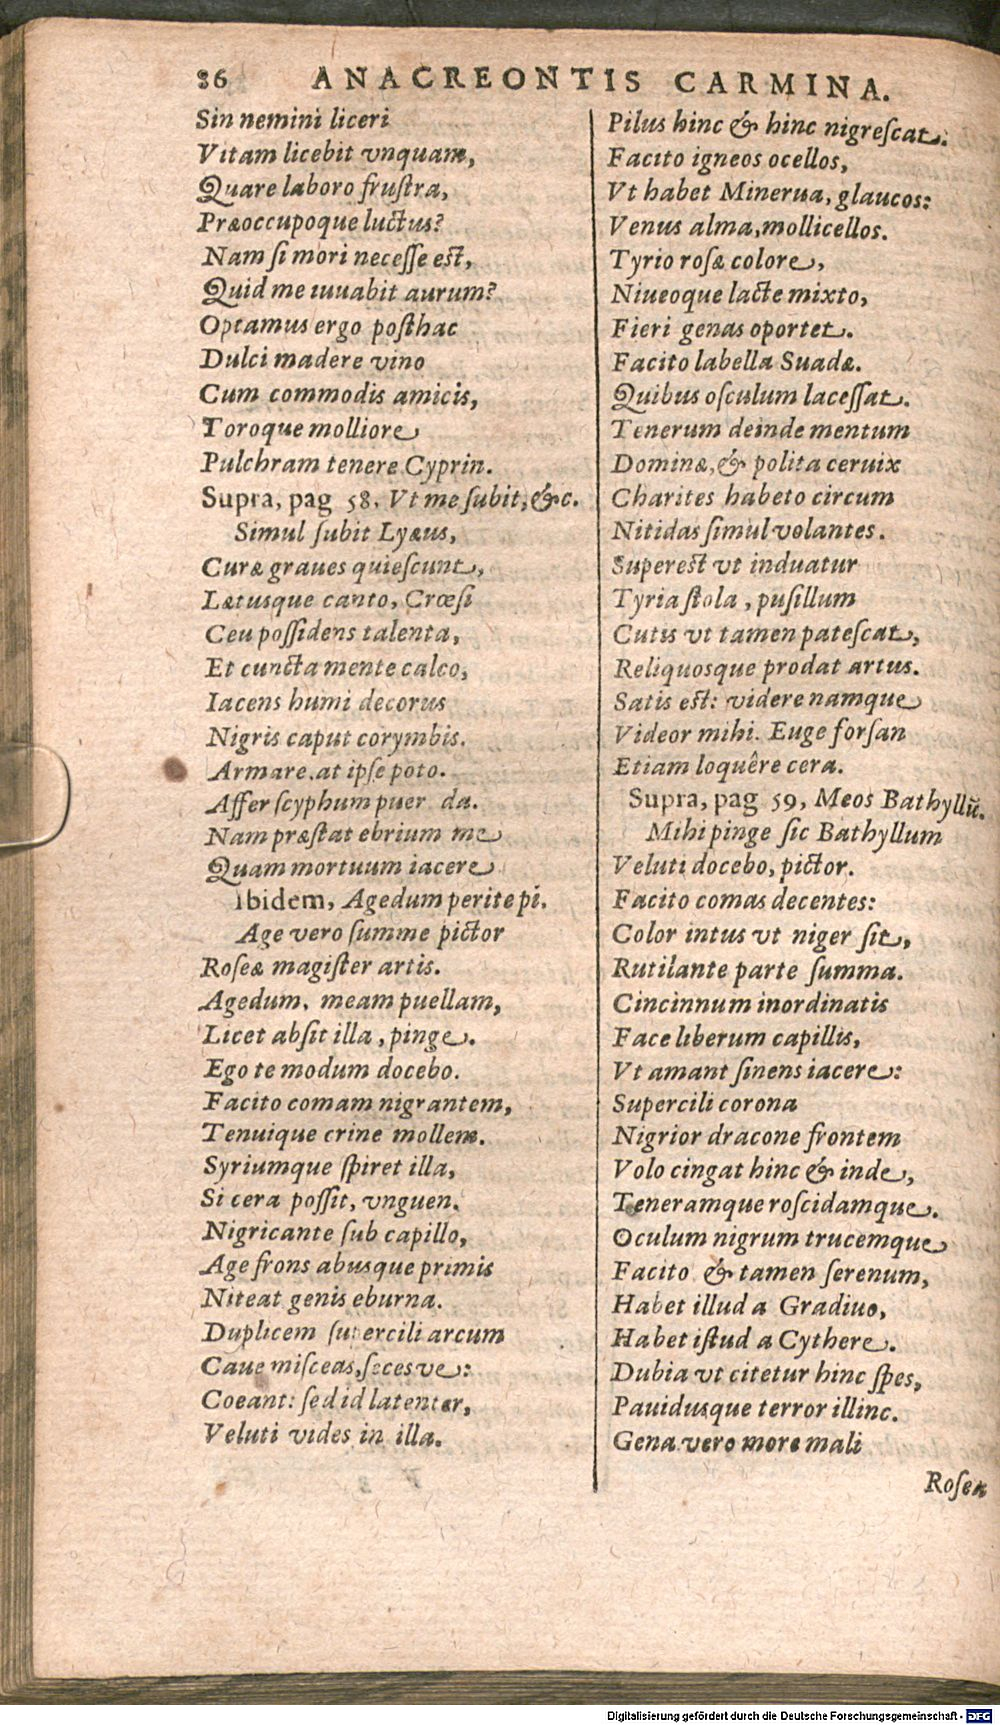 86 ANACREONTIS CARMINA.
Sin nemini liceri
Vitam licebit vnquam,
Quare laboro frustra,
Præoccupoque luctus?
Nam si mori necesse est,
Quid me iuuabit aurum?
Optamus ergo posthac
Dulci madere vino
Cum commodis amicis,
Toroque molliore
Pulchram tenere Cyprin.
Supra, pag 58, Vt me subit, &c.
Simul subit Lyæus,
Curæ graues quiescunt,
Lætusque canto, Crœsi
Ceu possidens talenta,
Et cuncta mente calco,
Iacens humi decorus
Nigris caput corymbis.
Armare, at ipse poto.
Affer scyphum puer da.
Nam præstat ebrium me
Quam mortuum iacere
Ibidem, Agedum perite pi.
Age vero summe pictor
Roseæ magister artis.
Agedum, meam puellam,
Licet absit illa, pinge.
Ego te modum docebo.
Facito comam nigrantem,
Tenuique crine mollem.
Syriumque spiret illa,
Si cera possit, vnguen.
Nigricante sub capillo,
Age frons abusque primis
Niteat genis eburna.
Duplicem supercili arcum
Caue misceas, seces ve:
Coeant: sed id latenter,
Veluti vides in illa.
Pilus hinc & hinc nigrescat.
Facito igneos ocellos,
Vt habet Minerua, glaucos:
Venus alma, mollicellos.
Tyrio rosæ colore,
Niueoque lacte mixto,
Fieri genas oportet.
Facito labella Suadæ.
Quibus osculum lacessat.
Tenerum deinde mentum
Dominæ, & polita ceruix
Charites habeto circum
Nitidas simul volantes.
Superest vt induatur
Tyria stola, pusillum
Cutis vt tamen patescat,
Reliquosque prodat artus.
Satis est: videre namque
Videor mihi. Euge forsan
Etiam loquêre cera.
Supra, pag 59, Meos Bathyllū.
Mihi pinge sic Bathyllum
Veluti docebo, pictor.
Facito comas decentes:
Color intus vt niger sit,
Rutilante parte summa.
Cincinnum inordinatis
Face liberum capillis,
Vt amant sinens iacere:
Supercili corona
Nigrior dracone frontem
Volo cingat hinc & inde,
Teneramque roscidamque.
Oculum nigrum trucemque
Facito & tamen serenum,
Habet illud a Gradiuo,
Habet istud a Cythere.
Dubia vt citetur hinc spes,
Pauidusque terror illinc.
Gena vero more mali
Roseæ
Digitalisierung gefördert durch die Deutsche Forschungsgemeinschaft - DFG